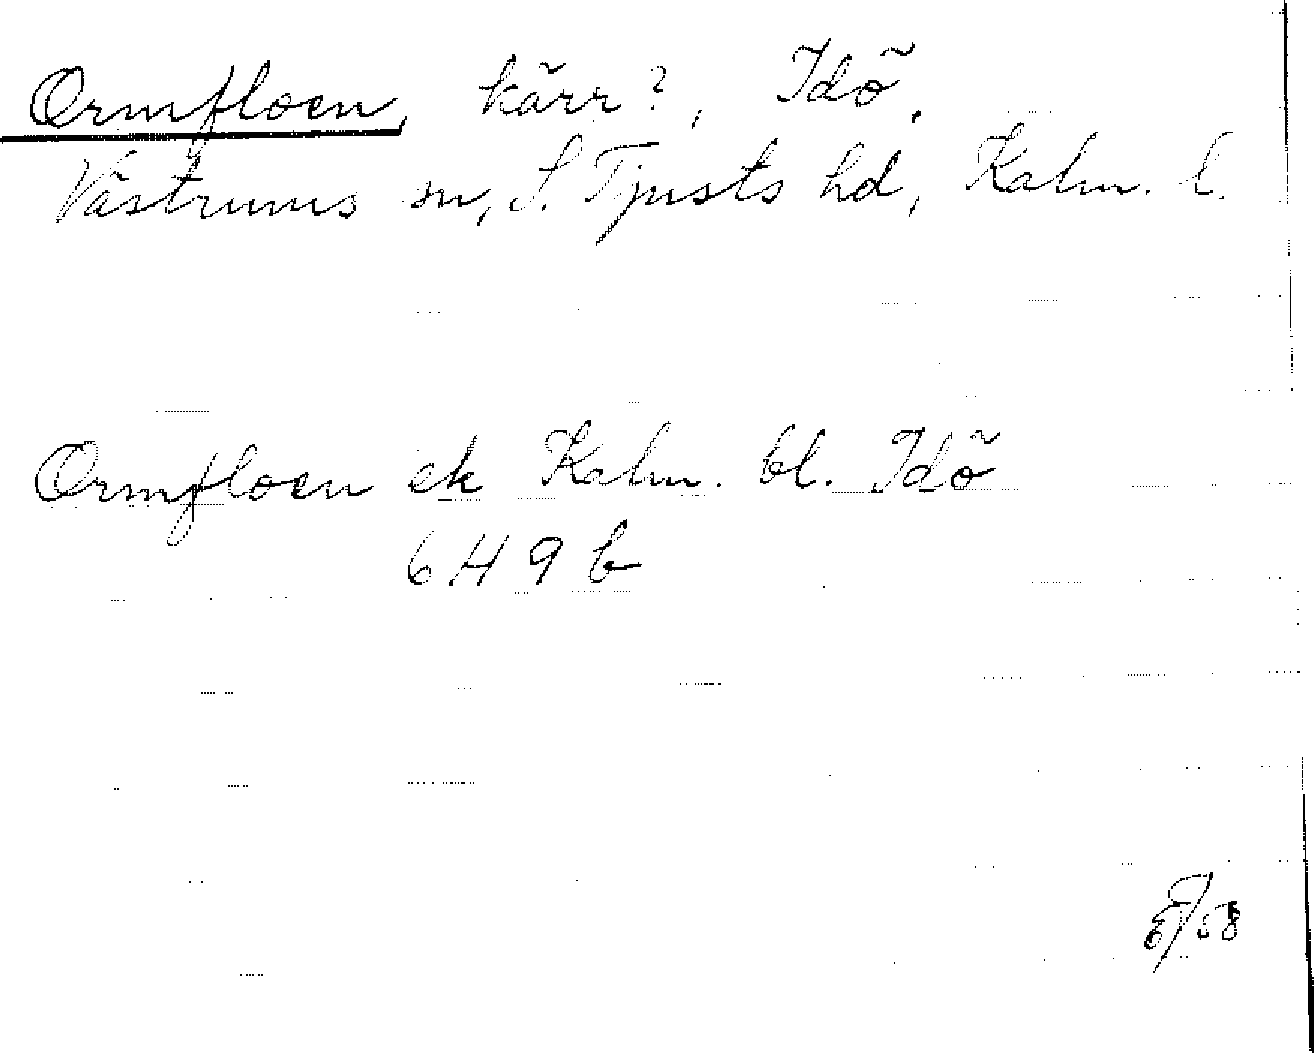 Ormfloen, kärr?, Idö,
Västrums sn, S. Tjusts hd, Kalm. l.
Ormfloen ek Kalm. bl. Idö
6 H 9 b
/58